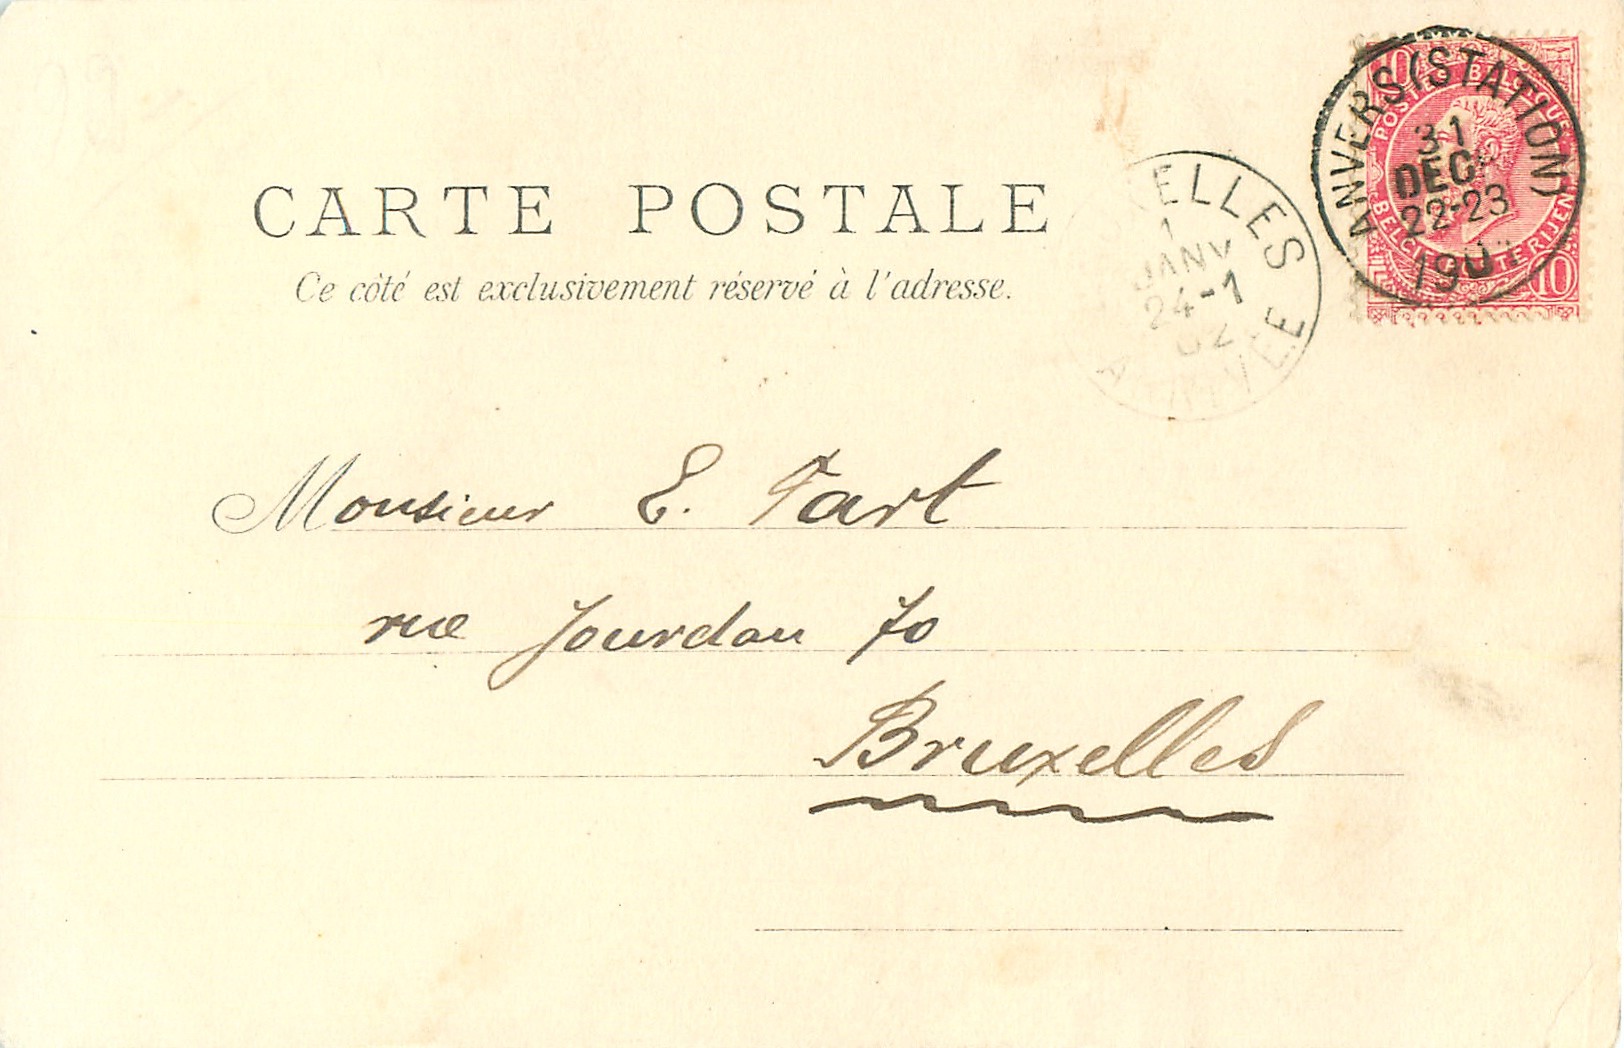 CARTE POSTALE
Ce côté est exclusivement réservé à l'adresse.
ANVERS (STATION)
31
DEC
22-23
10
POSTES BELGIQUE
BELGIE
10
ELLES
1
JANV
24-1
02
Monsieur E. Tart
rue Jourdan 70
Bruxelles